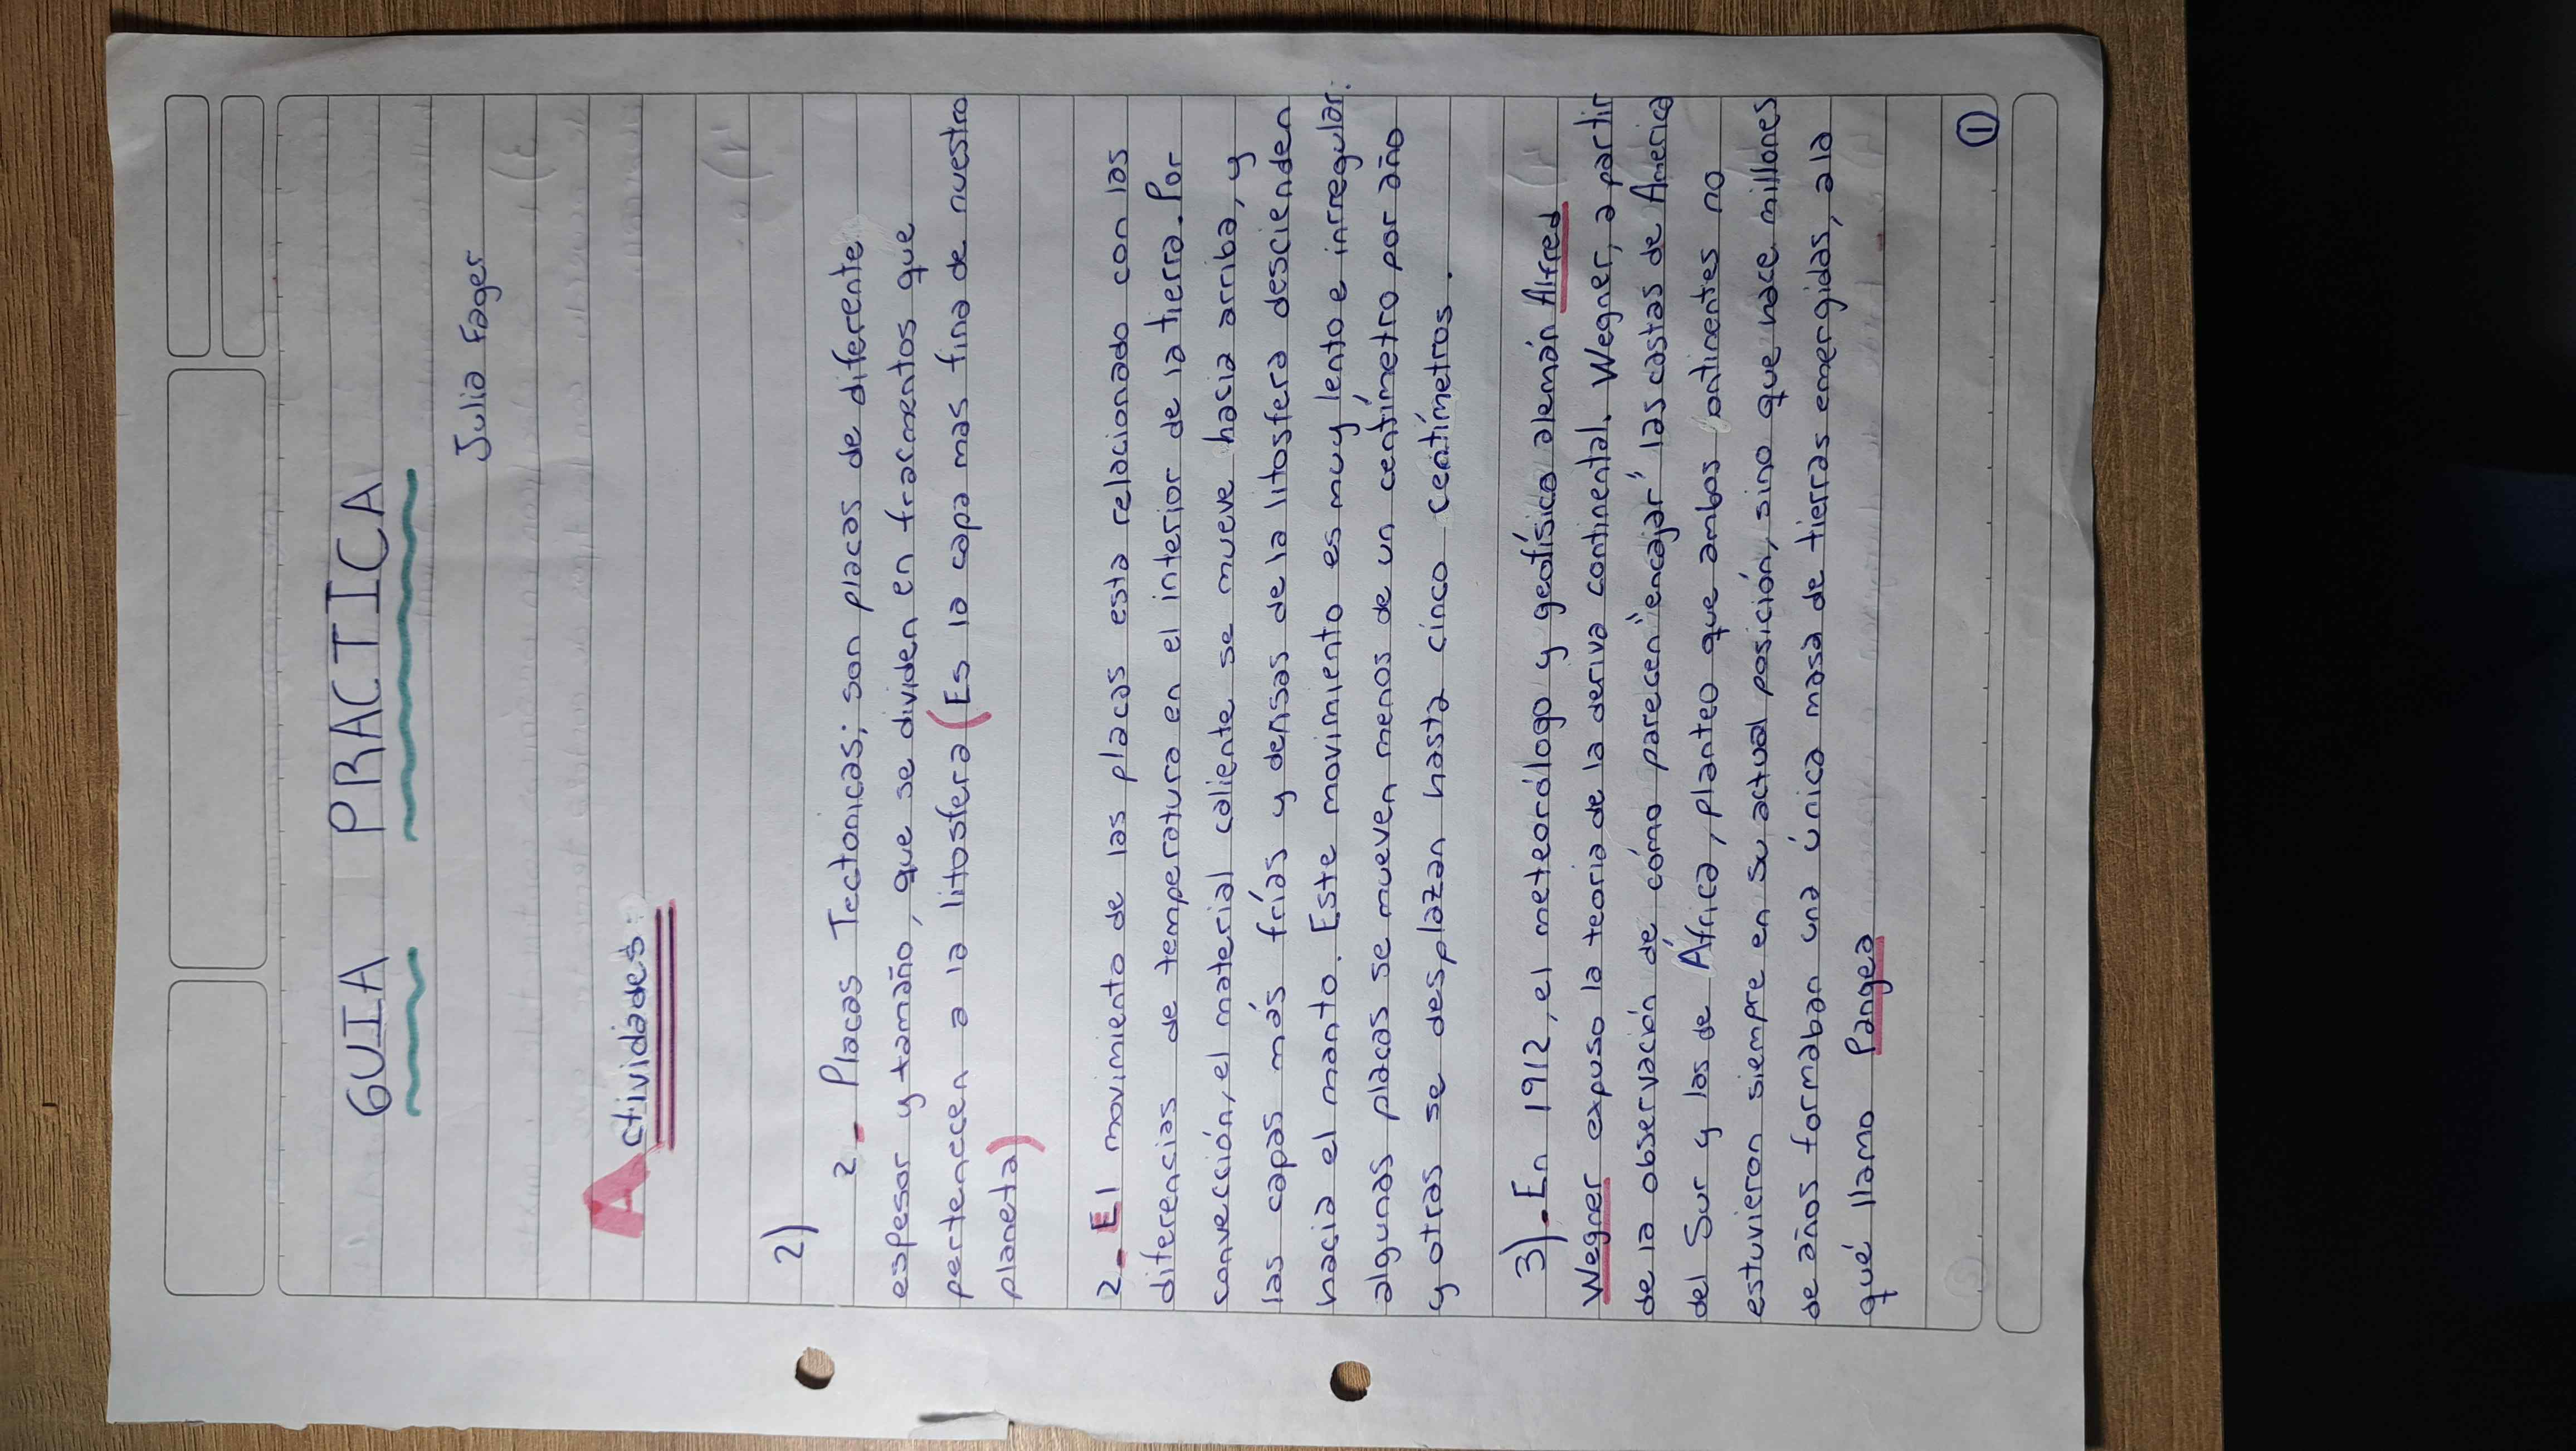 GUIA PRACTICA
Julia Fager
Actividades:
2)
2.- Placas Tectonicas; son placas de diferente
espesor y tamaño, que se dividen en fracmentos que
pertenecen a la litosfera (Es la capa mas fina de nuestro
planeta)
2.- El movimiento de las placas esta relacionado con las
diferencias de temperatura en el interior de la tierra. Por
convección, el material caliente se mueve hacia arriba, y
las capas más frías y densas de la litosfera descienden
hacia el manto. Este movimiento es muy lento e irregular:
algunas placas se mueven menos de un centímetro por año
y otras se desplazan hasta cinco centímetros.
3).- En 1912, el meteorólogo y geofísico alemán Alfred
Wegner expuso la teoria de la deriva continental. Wegner, a partir
de la observación de cómo parecen "encajar" las costas de America
del Sur y las de África, planteo que ambos ontinentes no
estuvieron siempre en su actual posición, sino que hace millones
de años formaban una única masa de tierras emergidas, a la
qué llamo Pangea
1